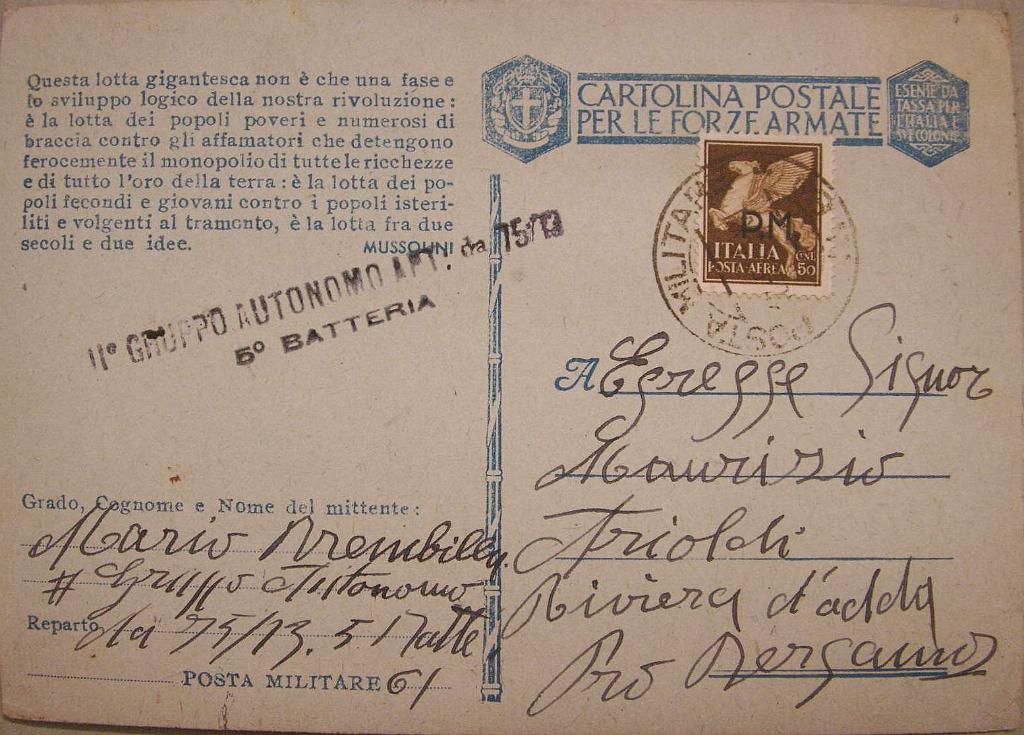 Questa lotta gigantesca non è che una fase e
lo sviluppo logico della nostra rivoluzione:
è la lotta dei popoli poveri e numerosi di
braccia contro gli affamatori che detengono
ferocemente il monopolio di tutte le ricchezze
e di tutto l'oro della terra: è la lotta dei po-
poli fecondi e giovani contro i popoli isteri-
liti e volgenti al tramonto, è la lotta fra due
secoli e due idee.
MUSSOLINI
II° GRUPPO AUTONOMO ART. da 75/13
5° BATTERIA
CARTOLINA POSTALE
PER LE FORZE ARMATE
ESENTE DA
TASSA PER
L'ITALIA E
SVE COLONIE
P.M.
ITALIA
POSTA-AEREA
CENT. 50
POSTA MILITARE
A Egregge Signor
Maurizio
Arioldi
Riviera d'adda
Pro Bergamo
Grado, Cognome e Nome del mittente:
Mario Brembilla
II Gruppo Autonomo
Reparto da 75/13. 5 Batte
POSTA MILITARE 61